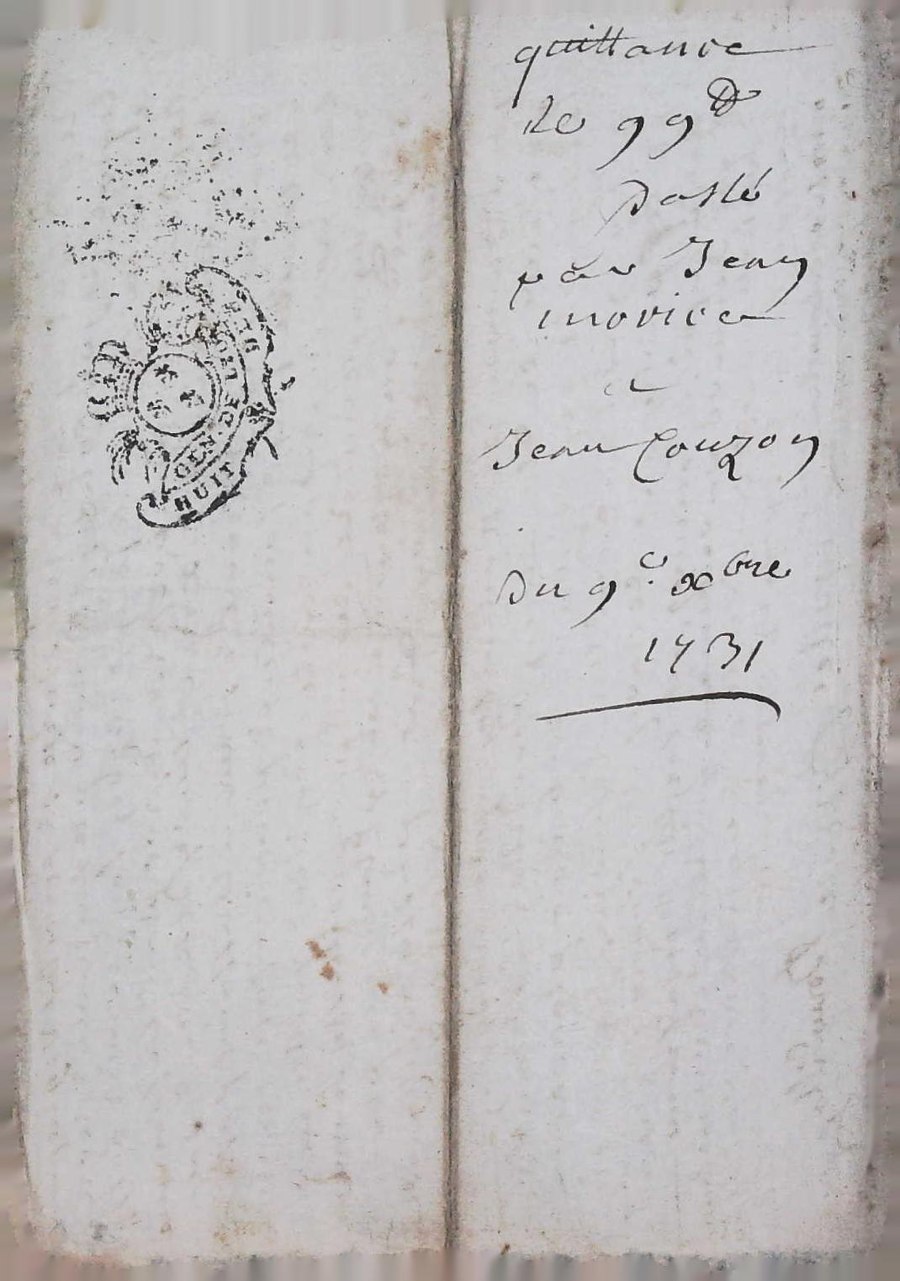 GEN DE
HUIT
quittance
de 99ᵗᵗ
passé
par Jean
morice
a
Jean Couzon
Du 9ᵉ. xbre
1731